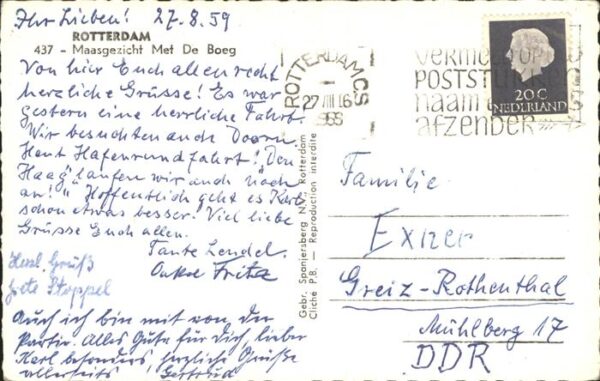 Ihr Lieben! 27.8.59
ROTTERDAM
437 - Maasgezicht Met De Boeg
Von hier Euch allen recht
herzliche Grüsse! Es war
gestern eine herrliche Fahrt.
Wir besuchten auch Doorn.
Heut Hafenrundfahrt! „Den
Haag" laufen wir auch noch
an! Hoffentlich geht es Karl
schon etwas besser. Viel liebe
Grüsse Euch allen.
Tante Lendel.
Onkel Fritz
Herzl. Gruß
Grete Stoppel
Auch ich bin mit von der
Partie. Alles Gute für Dich, lieber
Karl besonders, herzliche Grüße
allerseits Gertrud
Gebr. Spanjersberg N.V., Rotterdam
Cliché P.B. — Reproduction interdite
ROTTERDAM C.S
27 VIII 16
POSTSTUKKEN
naam
afzender
20c
NEDERLAND
Familie
Exner
Greiz-Rothenthal
Mühlberg 17
DDR